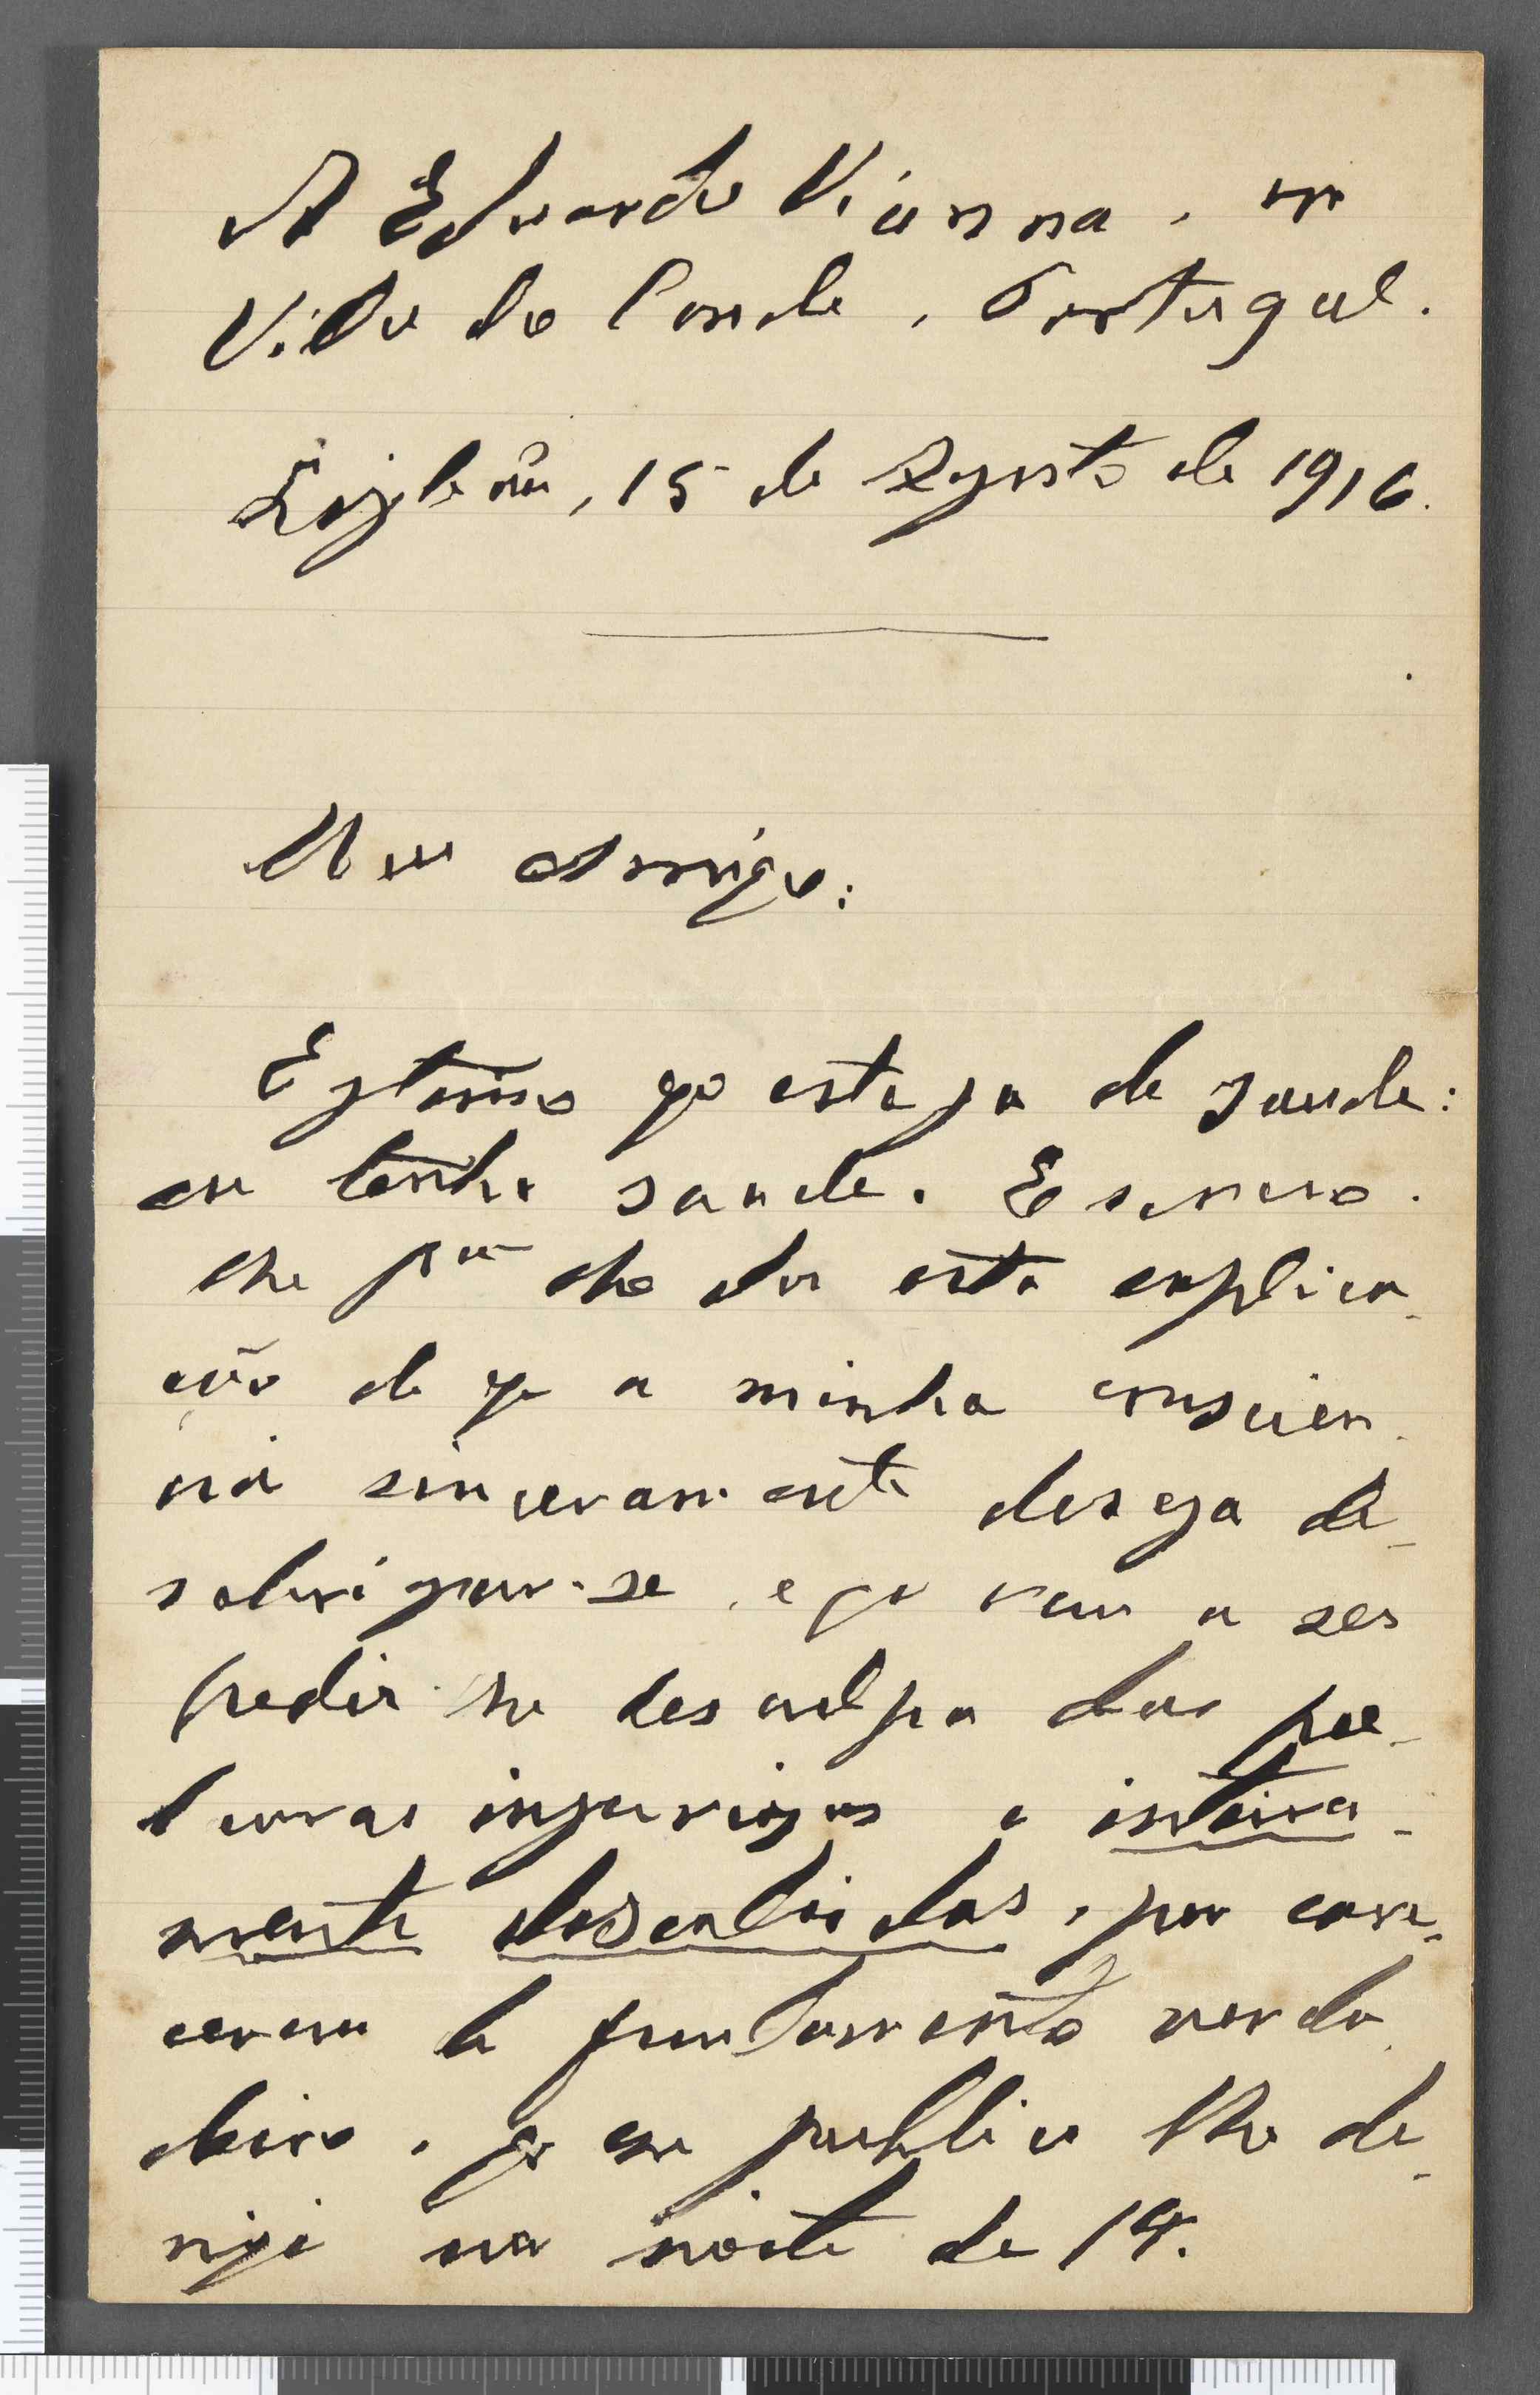 A Eduardo Vianna, em
Villa do Conde, Portugal.
Lisboa, 15 de Agosto de 1916.
Meu Amigo:
Estimo qe esteja de saude:
eu tenho saude. Escrevo-
lhe pra lhe dar esta explica-
ção de qe a minha conscien-
cia sinceramente deseja de-
sobrigar-se, e qe vem a ser
pedir-lhe desculpa das pa-
lavras injuriosas e inteira-
mente descabidas, por care-
cerem de fundamento verda-
deiro, qe em publico lhe de-
rigi na noite de 14.